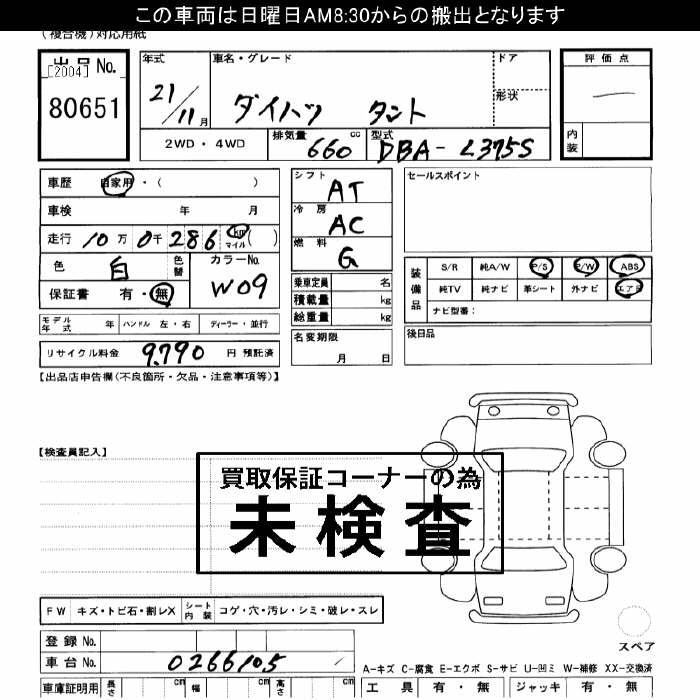 この車両は日曜日AM8:30からの搬出となります
(複合機)対応用紙
出品No.
[2004]
80651
年式
21/11月
車名・グレード
ダイハツ タント
ドア
形状
評価点
内装
2WD・4WD
排気量 660 cc
型式 DBA-L375S
車歴 自家用・( )
車検 年 月
走行 10万0千286 km マイル ( )
色 白 色替
カラーNo. W09
保証書 有・無
シフト AT
冷房 AC
燃料 G
乗車定員 名
積載量 kg
総重量 kg
セールスポイント
装備品
S/R 純A/W P/S P/W ABS
純TV 純ナビ 革シート 外ナビ エアB
ナビ型番:
モデル年式 年 ハンドル 左・右 ディーラー・並行
名変期限 月 日
後日品
リサイクル料金 9,790 円 預託済
【出品店申告欄(不良箇所・欠品・注意事項等)】
【検査員記入】
買取保証コーナーの為
未検査
FW キズ・トビ石・割レX シート内装 コゲ・穴・汚レ・シミ・破レ・スレ
登録No.
車台No. 0266105
スペア
A-キズ C-腐食 E-エクボ S-サビ U-凹ミ W-補修 XX-交換済
車庫証明用 長さ cm 幅 cm 高さ cm
工具 有・無 ジャッキ 有・無